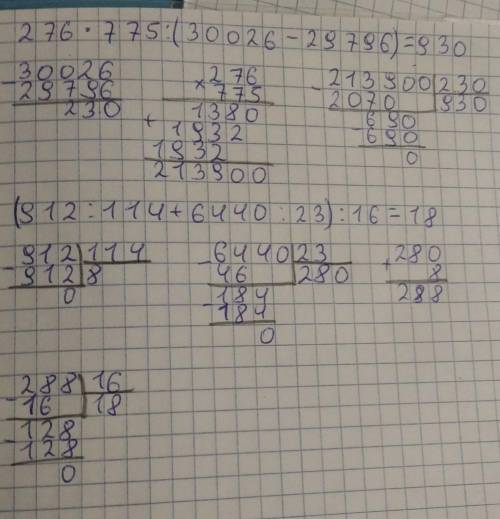 276·775:(30026-29796)=930
-30026
29796
230
×276
775
+1380
1932
1932
213900
-213900 230
2070 930
-690
690
0
(912:114+6440:23):16=18
-912 114
912 8
0
-6440 23
46 280
-184
184
0
+280
8
288
-288 16
16 18
-128
128
0